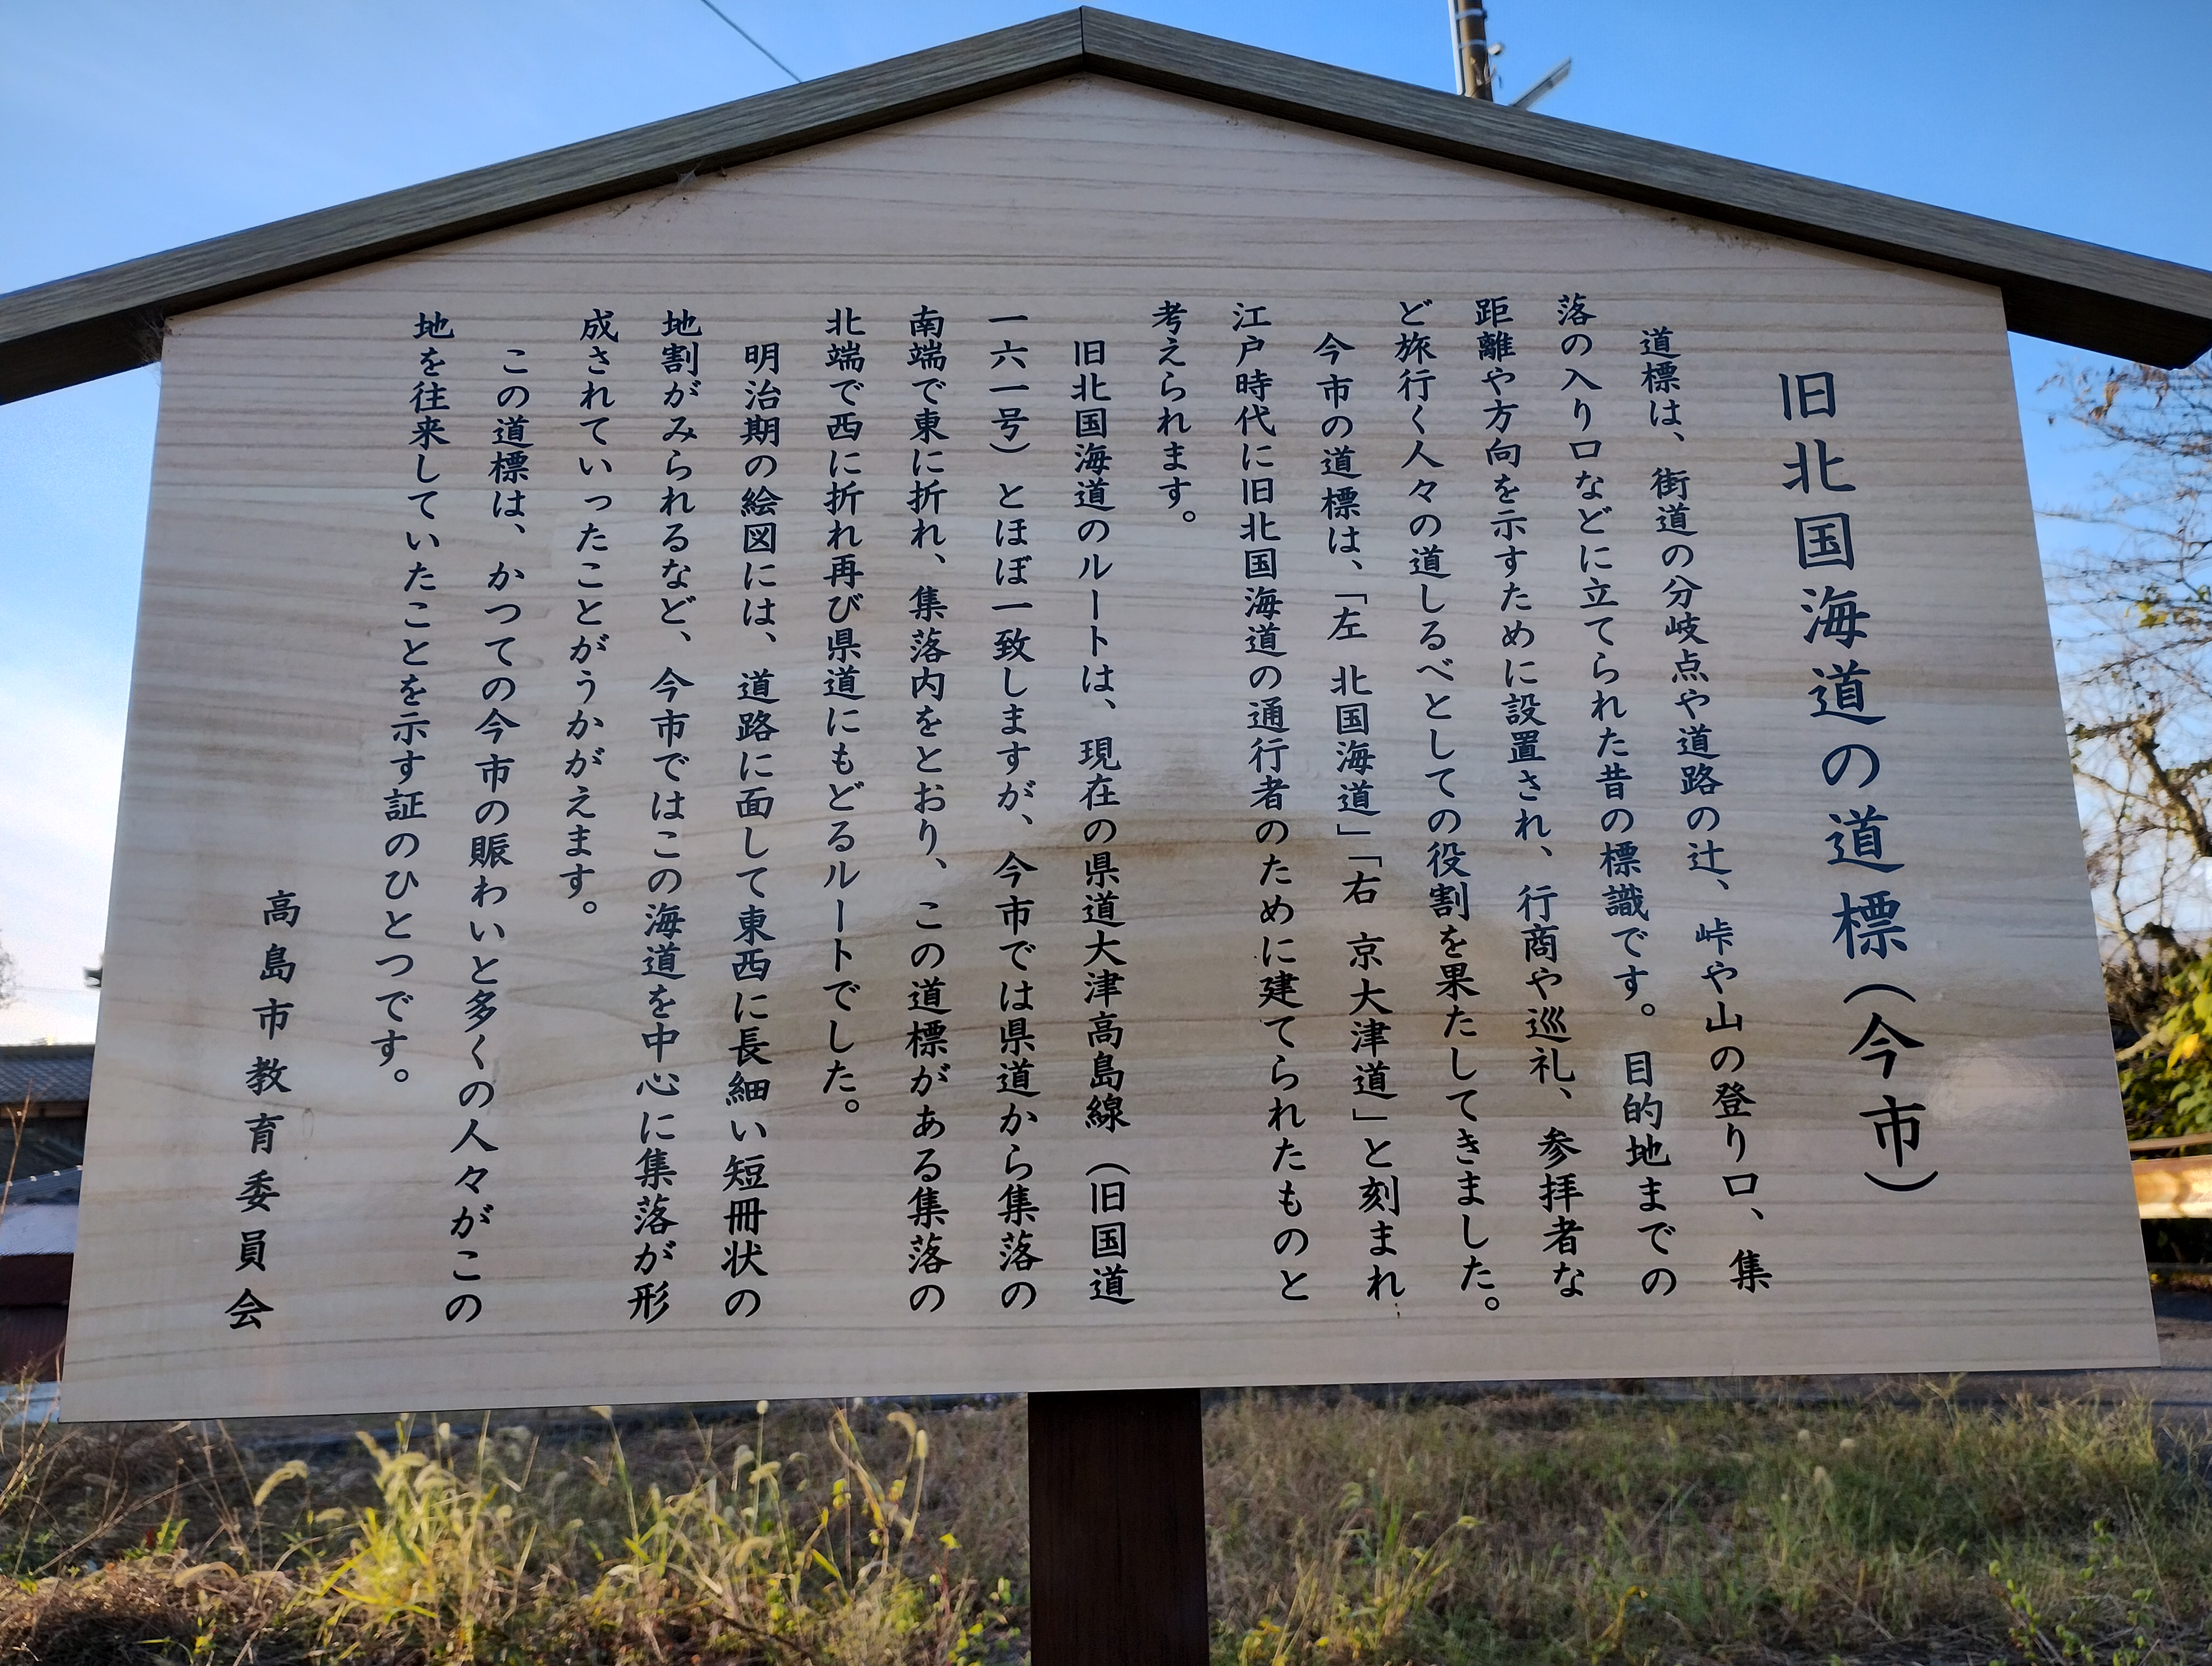 旧北国海道の道標(今市)
道標は、街道の分岐点や道路の辻、峠や山の登り口、集
落の入り口などに立てられた昔の標識です。目的地までの
距離や方向を示すために設置され、行商や巡礼、参拝者な
ど旅行く人々の道しるべとしての役割を果たしてきました。
今市の道標は、「左 北国海道」「右 京大津道」と刻まれ
江戸時代に旧北国海道の通行者のために建てられたものと
考えられます。
旧北国海道のルートは、現在の県道大津高島線(旧国道
一六一号)とほぼ一致しますが、今市では県道から集落の
南端で東に折れ、集落内をとおり、この道標がある集落の
北端で西に折れ再び県道にもどるルートでした。
明治期の絵図には、道路に面して東西に長細い短冊状の
地割がみられるなど、今市ではこの海道を中心に集落が形
成されていったことがうかがえます。
この道標は、かつての今市の賑わいと多くの人々がこの
地を往来していたことを示す証のひとつです。
高島市教育委員会